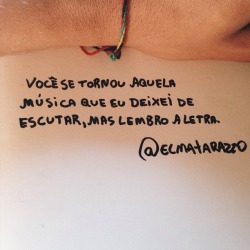 VOCÊ SE TORNOU AQUELA
MÚSICA QUE EU DEIXEI DE
ESCUTAR, MAS LEMBRO A LETRA.
@ELMATARAZZO